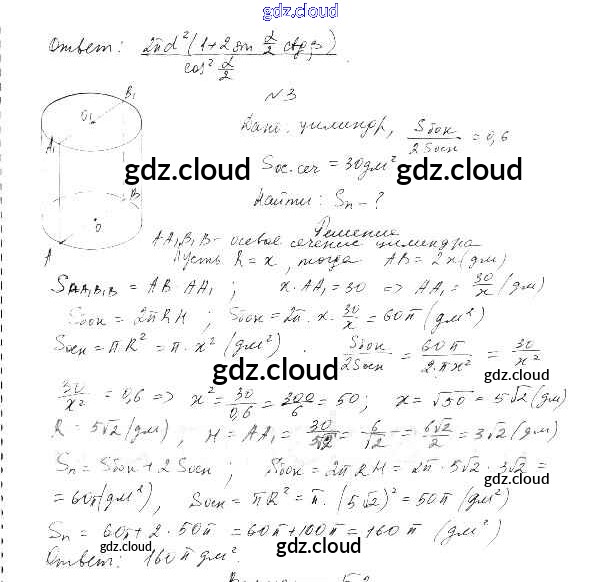 gdz.cloud
Ответ: 2πd²(1+2sin α/2 ctgβ) / cos² α/2
№3
B₁ O₁ A₁ B O A
Дано: цилиндр, Sбок / 2Sосн = 0,6
Sос.сеч = 30дм²
gdz.cloud gdz.cloud
Найти: Sп - ?
Решение
AA₁B₁B - осевое сечение цилиндра
Пусть R = x, тогда AB = 2x (дм)
SAA₁B₁B = AB · AA₁ ; x · AA₁ = 30 => AA₁ = 30/x (дм)
Sбок = 2πRH ; Sбок = 2π · x · 30/x = 60π (дм²)
gdz.cloud
Sосн = πR² = π · x² (дм²) . Sбок / 2Sосн = 60π / 2πx² = 30/x²
gdz.cloud gdz.cloud
30/x² = 0,6 => x² = 30/0,6 = 300/6 = 50 ; x = √50 = 5√2 (дм)
R = 5√2 (дм) , H = AA₁ = 30/5√2 = 6/√2 = 6√2/2 = 3√2 (дм)
Sп = Sбок + 2Sосн ; Sбок = 2πRH = 2π · 5√2 · 3√2 =
gdz.cloud gdz.cloud
= 60π (дм²) , Sосн = πR² = π · (5√2)² = 50π (дм²)
Sп = 60π + 2 · 50π = 60π + 100π = 160π (дм²)
gdz.cloud gdz.cloud
Ответ: 160π дм².